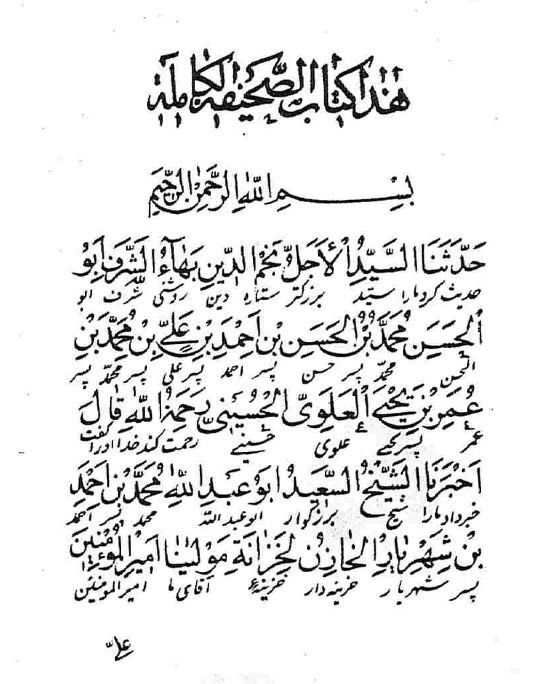 هذا كتاب الصحيفة الكاملة
بِسْمِ اللهِ الرَّحْمٰنِ الرَّحِيمِ
حَدَّثَنَا السَّيِّدُ الْأَجَلُّ نَجْمُ الدِّينِ بَهَاءُ الشَّرَفِ أَبُو
حدیث کرد مارا سیّد بزرگتر ستاره دین روشنی شرف ابو
الْحَسَنِ مُحَمَّدُ بْنُ الْحَسَنِ بْنِ اَحْمَدَ بْنِ عَلِيِّ بْنِ مُحَمَّدِ بْنِ
الحسن محمد پسر حسن پسر احمد پسر علی پسر محمد پسر
عُمَرَ بْنِ يَحْيَى الْعَلَوِيُّ الْحُسَيْنِيُّ رَحِمَهُ اللهُ قَالَ
عمر پسر یحیی علوی حسینی رحمت کند خدا اورا گفت
اَخْبَرَنَا الشَّيْخُ السَّعِيدُ اَبُو عَبْدِ اللهِ مُحَمَّدُ بْنُ اَحْمَدَ
خبر داد مارا شیخ بزرگوار ابو عبدالله محمد پسر احمد
بْنِ شَهْرِيَارَ الْخَازِنُ لِخِزَانَةِ مَوْلٰينَا اَمِيرِ الْمُؤْمِنِينَ
پسر شهریار خزینه دار خزینهٔ آقای ما امیرالمؤمنین
علی